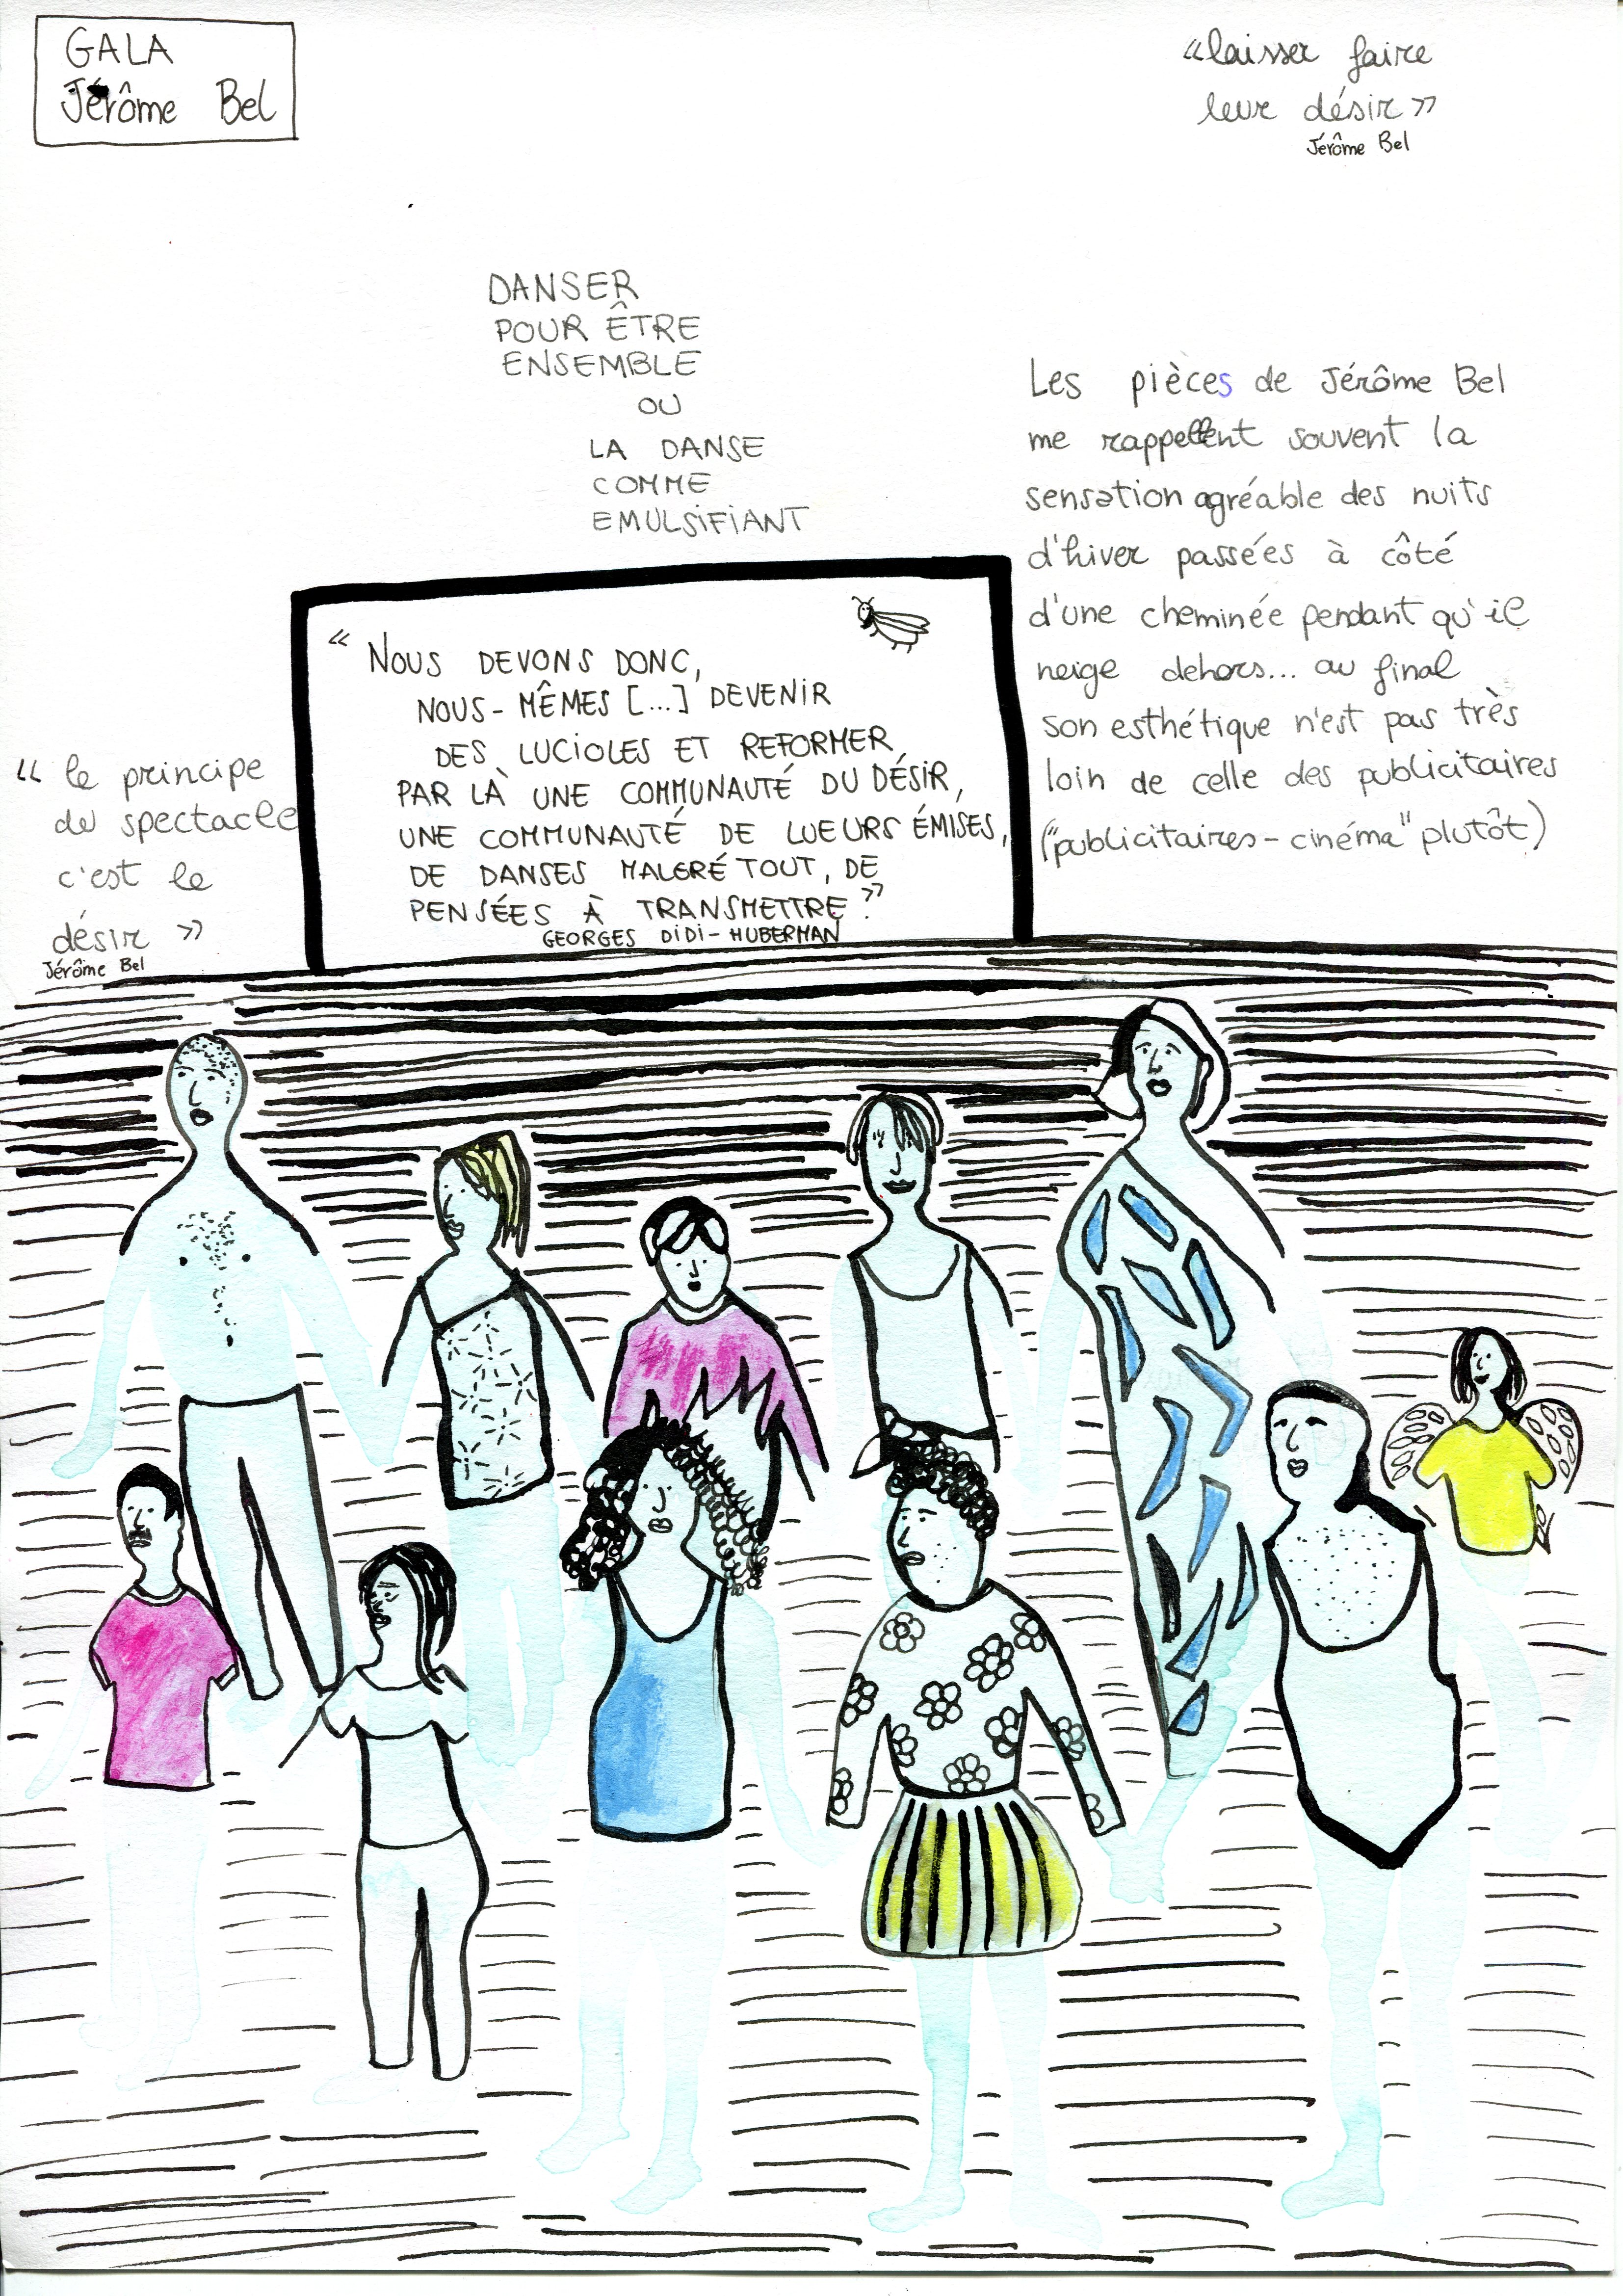 GALA
Jérôme Bel
«laisser faire
leur désir»
Jérôme Bel
DANSER
POUR ÊTRE
ENSEMBLE
OU
LA DANSE
COMME
EMULSIFIANT
Les pièces de Jérôme Bel
me rappellent souvent la
sensation agréable des nuits
d'hiver passées à côté
d'une cheminée pendant qu'il
neige dehors... au final
son esthétique n'est pas très
loin de celle des publicitaires
("publicitaires-cinéma" plutôt)
« NOUS DEVONS DONC,
NOUS-MÊMES [...] DEVENIR
DES LUCIOLES ET REFORMER
PAR LÀ UNE COMMUNAUTÉ DU DÉSIR,
UNE COMMUNAUTÉ DE LUEURS ÉMISES,
DE DANSES MALGRÉ TOUT, DE
PENSÉES À TRANSMETTRE »
GEORGES DIDI-HUBERMAN
« le principe
du spectacle
c'est le
désir »
Jérôme Bel